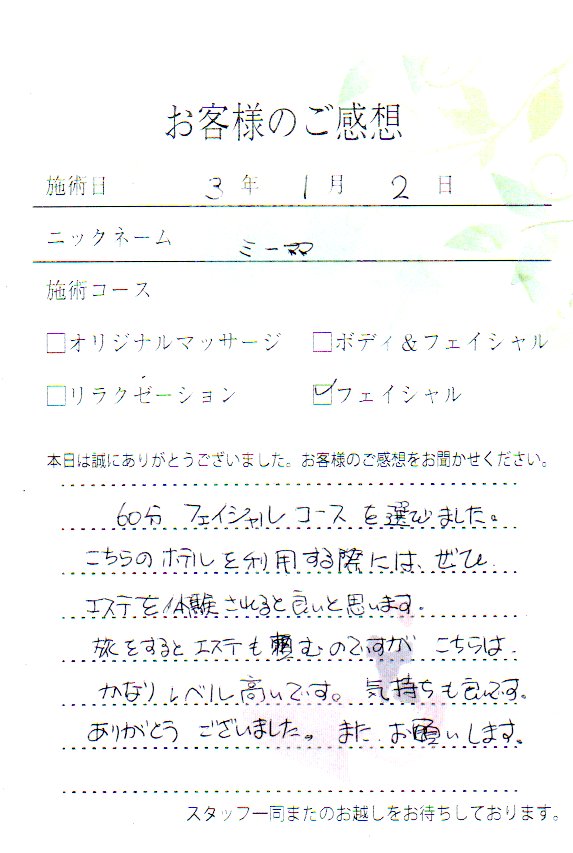 お客様のご感想
施術日 3年 1月 2日
ニックネーム ミー
施術コース
□オリジナルマッサージ □ボディ＆フェイシャル
□リラクゼーション ☑フェイシャル
本日は誠にありがとうございました。お客様のご感想をお聞かせください。
60分 フェイシャルコースを選びました。
こちらのホテルを利用する際には、ぜひ
エステを体験されると良いと思います。
旅をするとエステも頼むのですが こちらは
かなりレベル高いです。気持ちも良いです。
ありがとうございました。また、お願いします。
スタッフ一同またのお越しをお待ちしております。